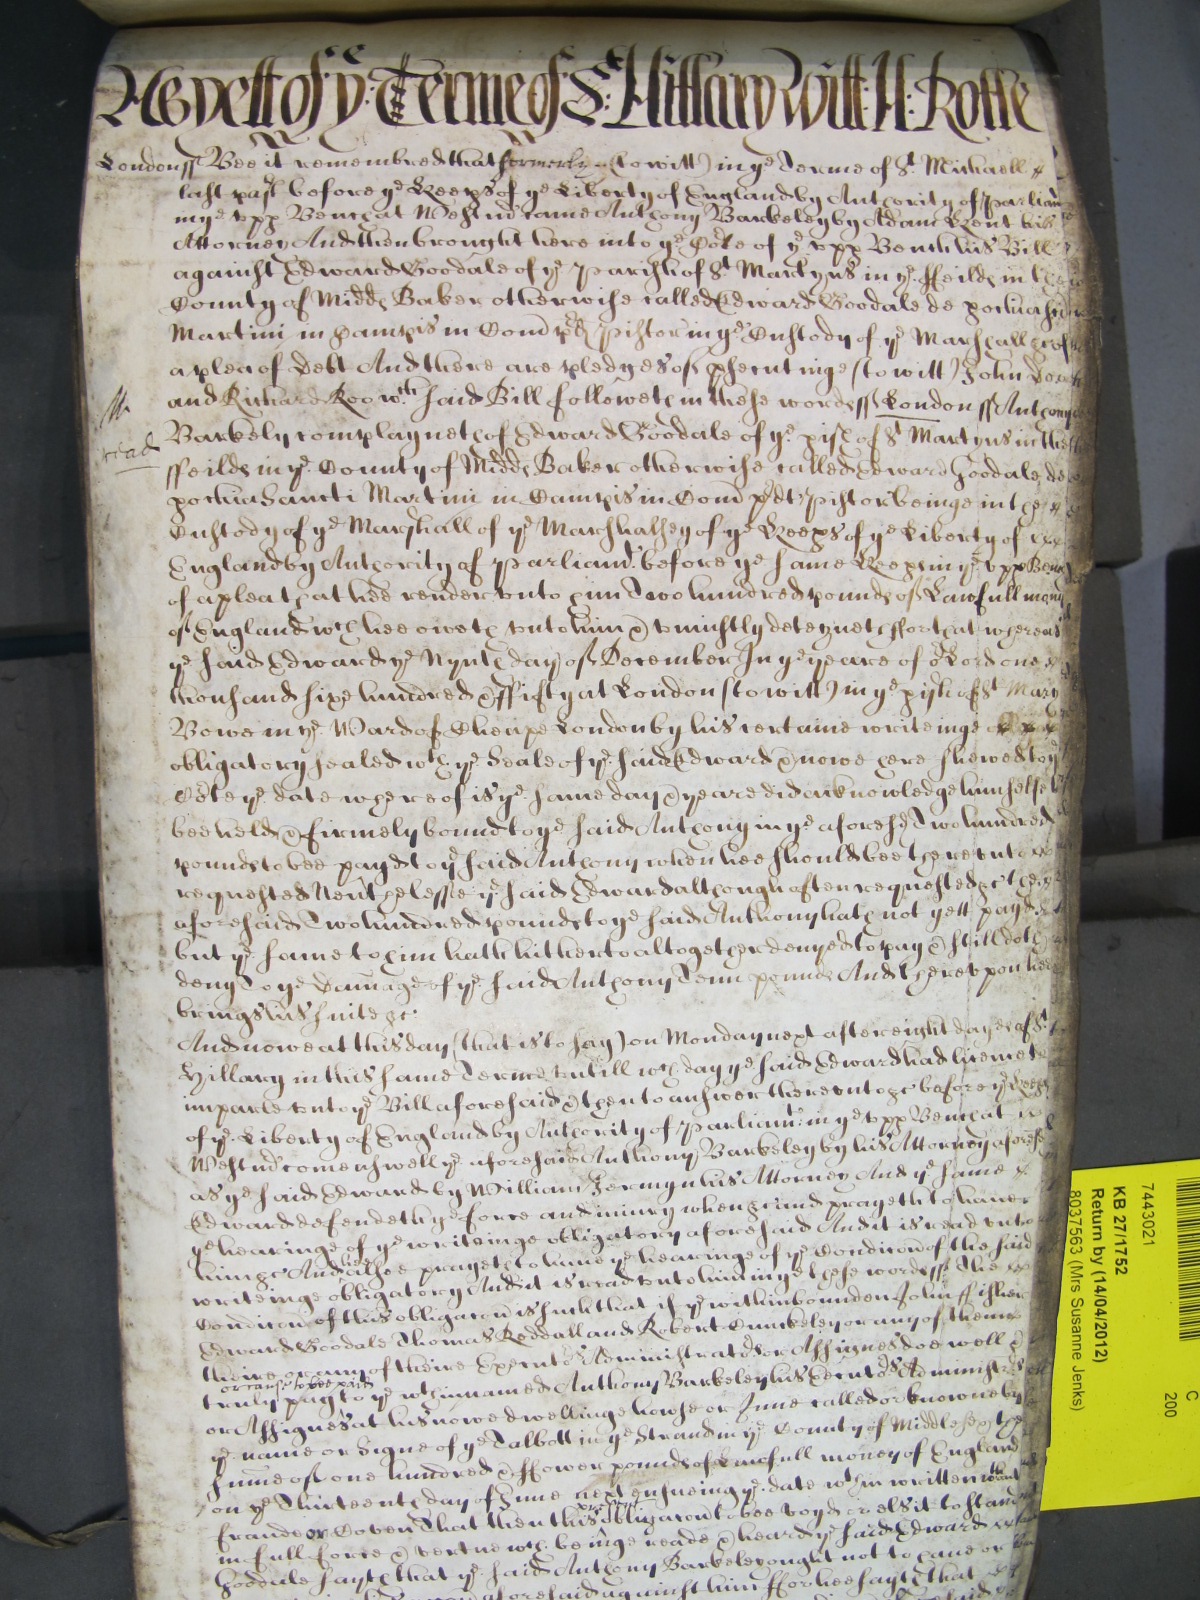 As yett of ye Terme of St Hillary Witt: H: Rolle
London ss Bee it remembred that formerly (to witt) in ye Terme of St Michaell
last past before ye Keeps of ye Liberty of England by Authority of Parliam
in ye upp Bench at Westm came Anthony Barkeley by Adam Kent his
Attorney And then brought here into ye Corte of ye upp Bench his Bill
against Edward Goodale of ye Parish of St Martyns in ye ffeilds in the
County of Midd Baker otherwise called Edward Goodale de pochia
Martini in Campis in Com pd Pistor in ye Custody of ye Marshall &c of
a plea of Debt And there are pledges of psecutinge (to witt) John Doe
and Richard Roo wch said Bill followeth in these words ss London ss Anthony
Barkely complayneth of Edward Goodale of ye pish of St Martyns in the
ffeilds in ye County of Midd Baker otherwise called Edward Goodale de
pochia Sancti Martini in Campis in Com pdt Pistor beinge in the
Custody of ye Marshall of ye Marshalsey of ye Keeps of ye Liberty of
England by Authority of Parliamt before ye same Keeps in ye upp Bench
of a plea that hee render unto him Two hundred pounds of Lawfull mony
of England wch hee oweth unto him & uniustly deteyneth ffor that whereas
ye said Edward ye Nynth day of December In ye yeare of or Lord one
thousand sixe hundred & ffifty at London (to witt) in ye pish of St Mary
Bowe in ye Ward of Cheape London by his certaine writeinge
obligatory sealed wth ye Seale of ye said Edward & nowe here shewed to ye
Corte ye date whereof is ye same day & yeare did acknowledge himselfe to
bee held & firmely bound to ye said Anthony in ye aforesd Two hundred
pounds to bee payd to ye said Anthony when hee should bee thereunto
requested Nevtheless ye said Edward although often requested &c the
aforesaid Two hundred pounds to ye said Anthony hath not yett payd
but ye same to him hath hitherto altogether denyed to pay & still doth
deny To ye Damage of ye said Anthony Tenn pounds And thereupon hee
brings his suite &c
And nowe at this day (that is to say) on Monday next after eight dayes of St
Hillary in this same Terme untill wch day ye said Edward had licence to
imparle unto ye Bill aforesaid & then to answer thereunto &c before ye Keeps
of ye Liberty of England by Authority of Parliamt in ye upp Bench at
Westm comes as well ye aforesaid Anthony Barkeley by his Attorney aforesd
as ye said Edward by William Jermyn his Attorney And ye same
Edward defendeth ye force and iniury when &c and prayeth to have
ye hearinge of ye writeinge obligatory aforesaid And it is read unto
him &c And hee alsoe prayeth to have ye hearinge of ye Condicon of the said
writeinge obligatory And it is read unto him in these words ss The
Condicon of this obligacon is such that if ye within bounden John ffisher
Edward Goodale Thomas Reddall and Robert Dunckeley or any of them
theire or any of theire Executors Administrators or Assignes doe well &
truly pay or cause to bee paid to ye wthinnamed Anthony Barkeley his Executors Administrators
or Assignes at his nowe dwellinge howse or Inne called or knowne by
ye name or Signe of ye Talbott in ye Strand in ye County of Middlesex the
summe of one hundred & ffower pounds of Lawfull money of England
on ye Thirteenth day of June next ensueing ye date wthin written without
fraude or Coven That then this present obligacon to bee voyd or els it to stand
in full force & vertue wch beinge reade & heard ye said Edward
Goodale sayth that ye said Anthony Barkeley ought not to have or
aforesaid against him ffor hee sayth that
7443021
KB 27/1752
Return by (14/04/2012)
8037563 (Mrs Susanne Jenks)
C
200